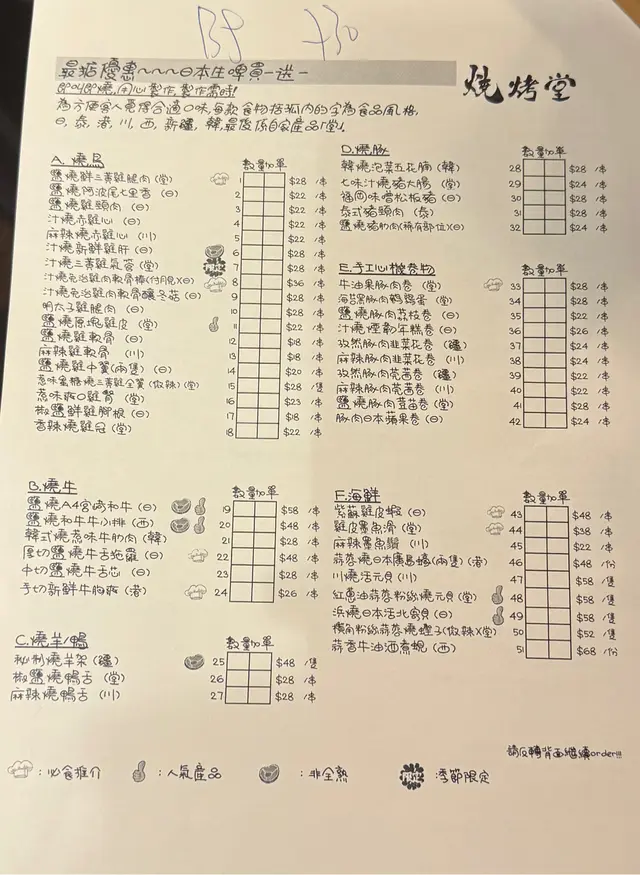 B9 730
最抵優惠~~~日本生啤買一送一
即叫即燒,用心製作,製作需時!
為方便客人選擇合適口味,每款食物括弧內的字為食品風格,
日,泰,港,川,西,新疆,韓,最後係自家產品「堂」.
燒烤堂
A.燒鳥 數量加單
鹽燒鮮三黃雞腿肉(堂) 1 $28 /本
鹽燒阿波尾七里香(日) 2 $22 /本
鹽燒雞頸肉(日) 3 $22 /本
汁燒赤雞心(日) 4 $22 /本
麻辣燒赤雞心(川) 5 $22 /本
汁燒新鮮雞肝(日) 6 $28 /本
汁燒三黃雞氣管(堂) 7 $28 /本
汁燒免治雞肉軟骨棒(付月見)(日) 8 $36 /本
汁燒免治雞肉軟骨釀冬菇(日) 9 $28 /本
明太子雞腿肉(日) 10 $28 /本
鹽燒原塊雞皮(堂) 11 $22 /本
鹽燒雞軟骨(日) 12 $18 /本
麻辣雞軟骨(川) 13 $18 /本
鹽燒雞中翼(兩隻)(日) 14 $20 /本
惹味蜜糖燒三黃雞全翼(微辣)(堂) 15 $28 /隻
惹味爽口雞腎(堂) 16 $23 /本
椒鹽鮮雞腳根(日) 17 $18 /本
香辣燒雞冠(堂) 18 $22 /本
B.燒牛 數量加單
鹽燒A4宮崎和牛(日) 19 $58 /本
鹽燒和牛牛小排(西) 20 $48 /本
韓式燒惹味牛肋肉(韓) 21 $28 /本
厚切鹽燒牛舌拖羅(日) 22 $48 /本
中切鹽燒牛舌芯(日) 23 $28 /本
手切新鮮牛胸爽(港) 24 $26 /本
C.燒羊/鴨 數量加單
秘制燒羊架(疆) 25 $48 /隻
椒鹽燒鴨舌(堂) 26 $28 /本
麻辣燒鴨舌(川) 27 $28 /本
D.燒豚 數量加單
韓燒泡菜五花腩(韓) 28 $28 /本
七味汁燒豬大腸(堂) 29 $24 /本
福岡味噌松板豬(日) 30 $28 /本
泰式豬頸肉(泰) 31 $28 /本
鹽燒豬肋肉(稀有部位)(日) 32 $24 /本
E.手工心機卷物 數量加單
牛油果豚肉卷(堂) 33 $28 /本
海苔黑豚肉鵪鶉蛋(堂) 34 $28 /本
鹽燒豚肉荔枝卷(堂) 35 $22 /本
汁燒煙鴨年糕卷(日) 36 $26 /本
孜然豚肉韭菜花卷(疆) 37 $24 /本
麻辣豚肉韭菜花卷(川) 38 $24 /本
孜然豚肉莞茜卷(疆) 39 $22 /本
麻辣豚肉莞茜卷(川) 40 $22 /本
鹽燒豚肉荳苗卷(堂) 41 $28 /本
豚肉日本蘋果卷(日) 42 $24 /本
F.海鮮 數量加單
紫蘇雞皮蝦(日) 43 $48 /本
雞皮墨魚滑(堂) 44 $38 /本
麻辣墨魚鬚(川) 45 $22 /本
蒜蓉燒日本廣島蠔(兩隻)(港) 46 $48 /份
川燒活元貝(川) 47 $58 /隻
紅蔥油蒜蓉粉絲燒元貝(堂) 48 $58 /隻
浜燒日本活北寄貝(日) 49 $58 /隻
欖角粉絲蒜蓉燒蟶子(微辣)(堂) 50 $52 /隻
蒜香牛油酒煮蜆(西) 51 $68 /份
請反轉背面繼續order!!!
:必食推介 :人氣產品 :非全熟 限定:季節限定